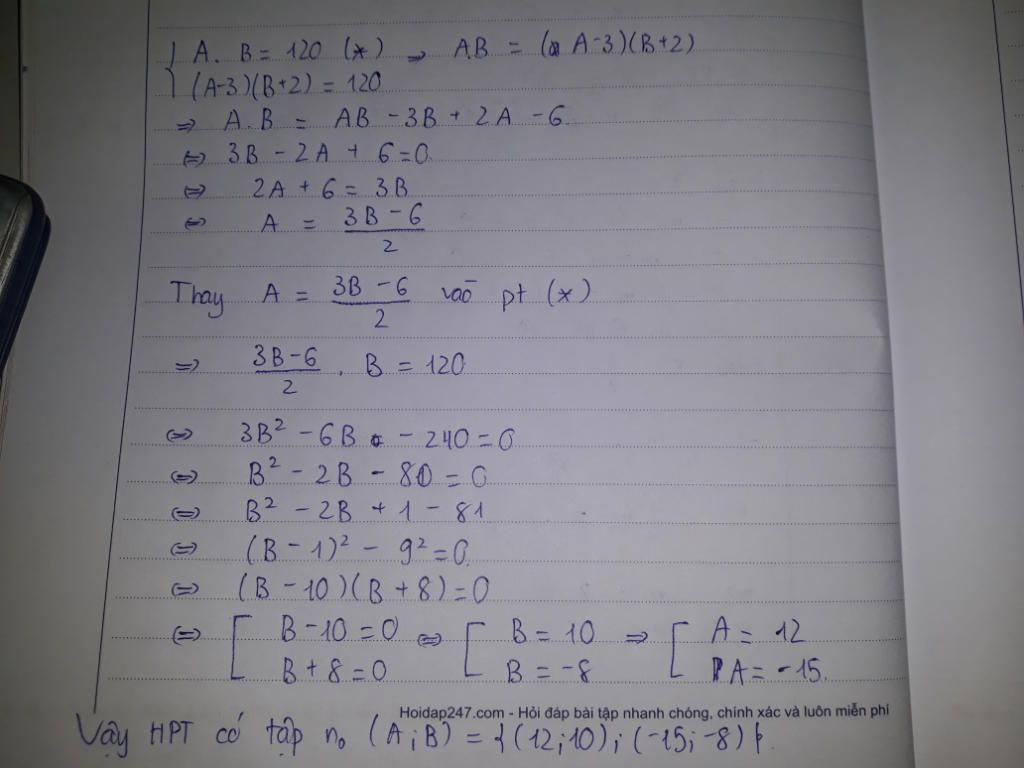 { A. B = 120 (*) => A.B = (A-3)(B+2)
(A-3)(B+2) = 120
=> A.B = AB - 3B + 2A - 6
<=> 3B - 2A + 6 = 0
<=> 2A + 6 = 3B
<=> A = \frac{3B - 6}{2}
Thay A = \frac{3B - 6}{2} vào pt (*)
=> \frac{3B-6}{2} . B = 120
<=> 3B² - 6B - 240 = 0
<=> B² - 2B - 80 = 0
<=> B² - 2B + 1 - 81
<=> (B - 1)² - 9² = 0
<=> (B - 10)(B + 8) = 0
<=> [ B - 10 = 0 <=> [ B = 10 => [ A = 12
B + 8 = 0 B = -8 A = -15.
Hoidap247.com - Hỏi đáp bài tập nhanh chóng, chính xác và luôn miễn phí
Vậy HPT có tập n₀ (A;B) = {(12;10); (-15;-8)}.